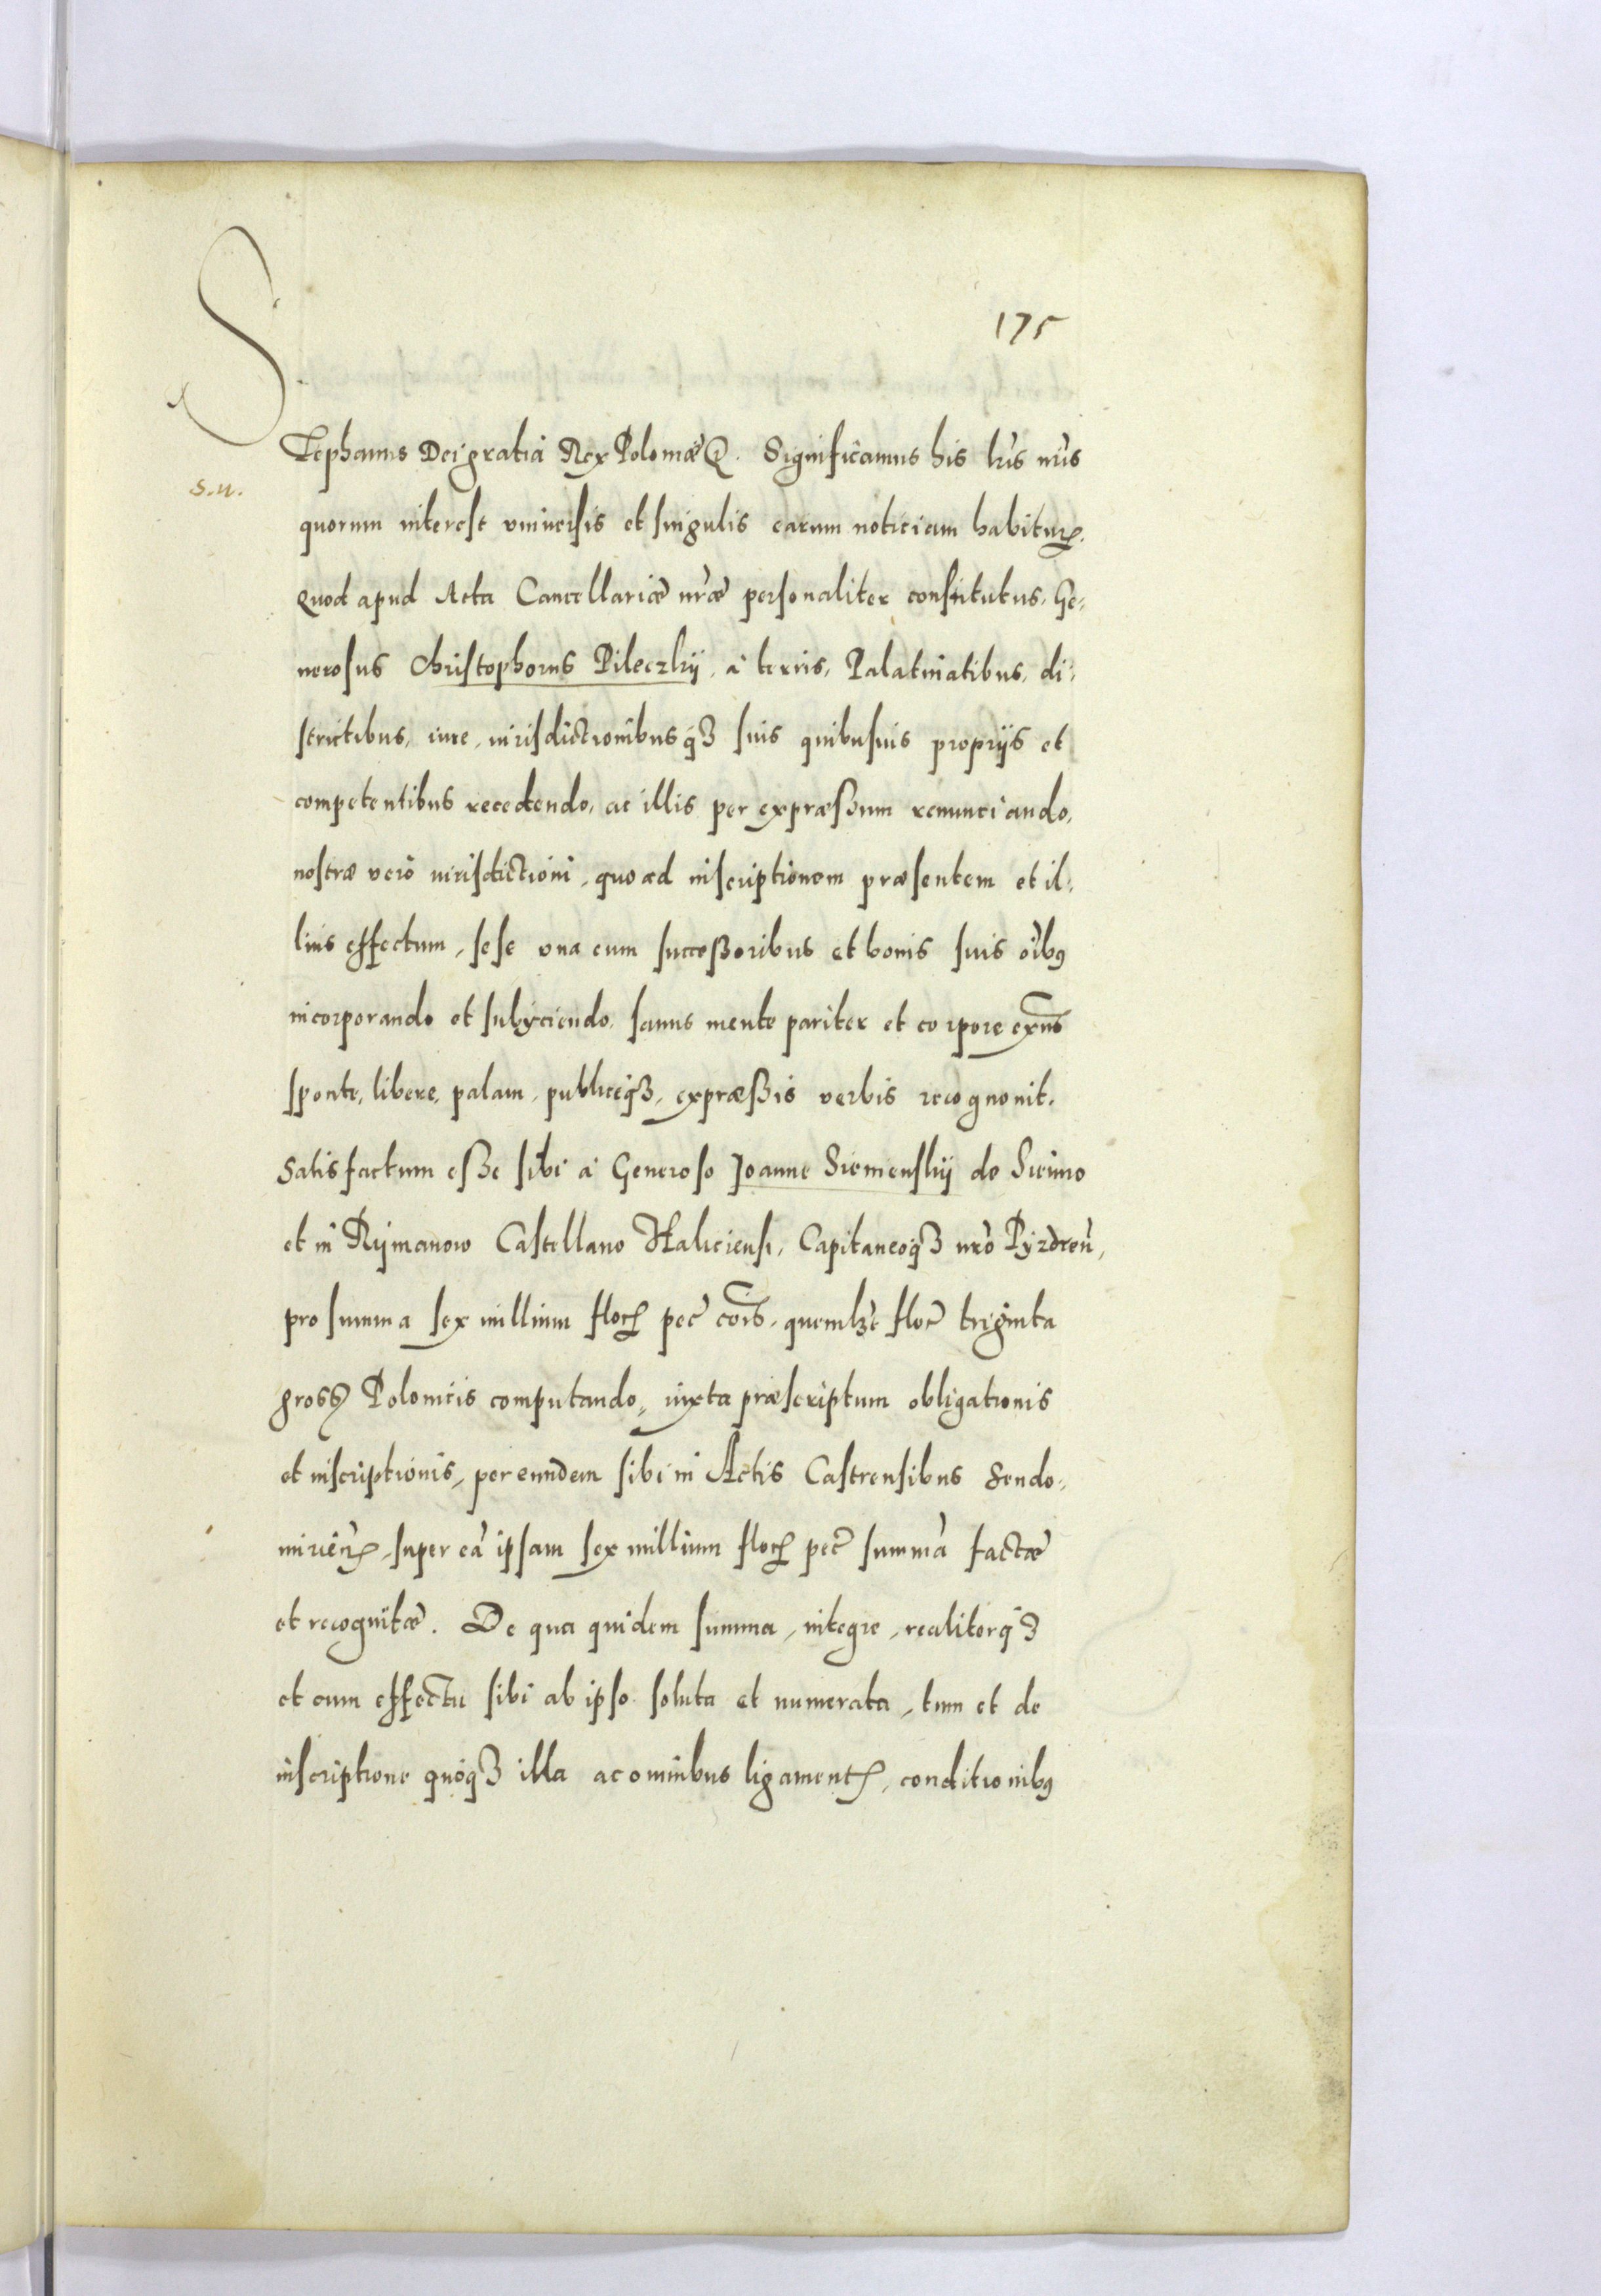 175
Stephanus Dei gratia Rex Poloniæ &. Significamus his lr̃is nr̃is
s. n.
quorum interest vniuersis et singulis earum noticiam habitur.
Quod apud Acta Cancellariæ nr̃æ personaliter constitutus. Ge-
nerosus Christophorus Pileczkÿ, à terris, Palatinatibus, di-
strictibus, iure, iurisdictionibusqꝫ suis quibusuis proprÿs et
competentibus recedendo, ac illis per expræßum renunciando,
nostræ verò iurisdictioni, quo ad inscriptionem præsentem et il-
lius effectum, sese vna cum succeßoribus et bonis suis oĩbꝯ
incorporando et subÿciendo. sanus mente pariter et corpore exñs
sponte, libere, palam, publiceqꝫ, expræßis verbis recognouit.
Satisfactum eße sibi à Generoso Joanne Siemenskÿ de Sieimo
et in Rÿmanow Castellano Haliciensi, Capitaneoqꝫ nr̃o Pÿzdren̄,
pro summa sex millium flor pec̃ com̃is. quemlꝫt flor̃ triginta
gross Polonicis computando, iuxta præscriptum obligationis
et inscriptionis, per eundem sibi in Actis Castrensibus Sendo-
mirien̄, super eã ipsam sex millium flor pec̃ summã factæ
et recognitæ. De qua quidem summa, integre, realiterqꝫ
et cum effectu sibi ab ipso soluta et numerata, tum et de
inscriptione quoqꝫ illa ac omnibus ligament, conditionibꝯ